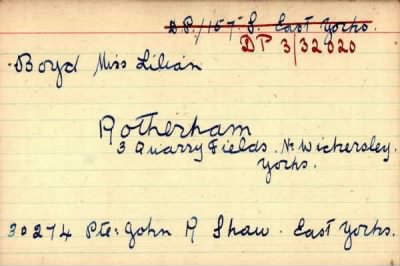 D.P./157 S. East Yorks.
DP 3/32020
Boyd Miss Lilian
Rotherham
3 Quarry Fields. Nr Wickersley.
Yorks.
30274 Pte: John R Shaw. East Yorks.